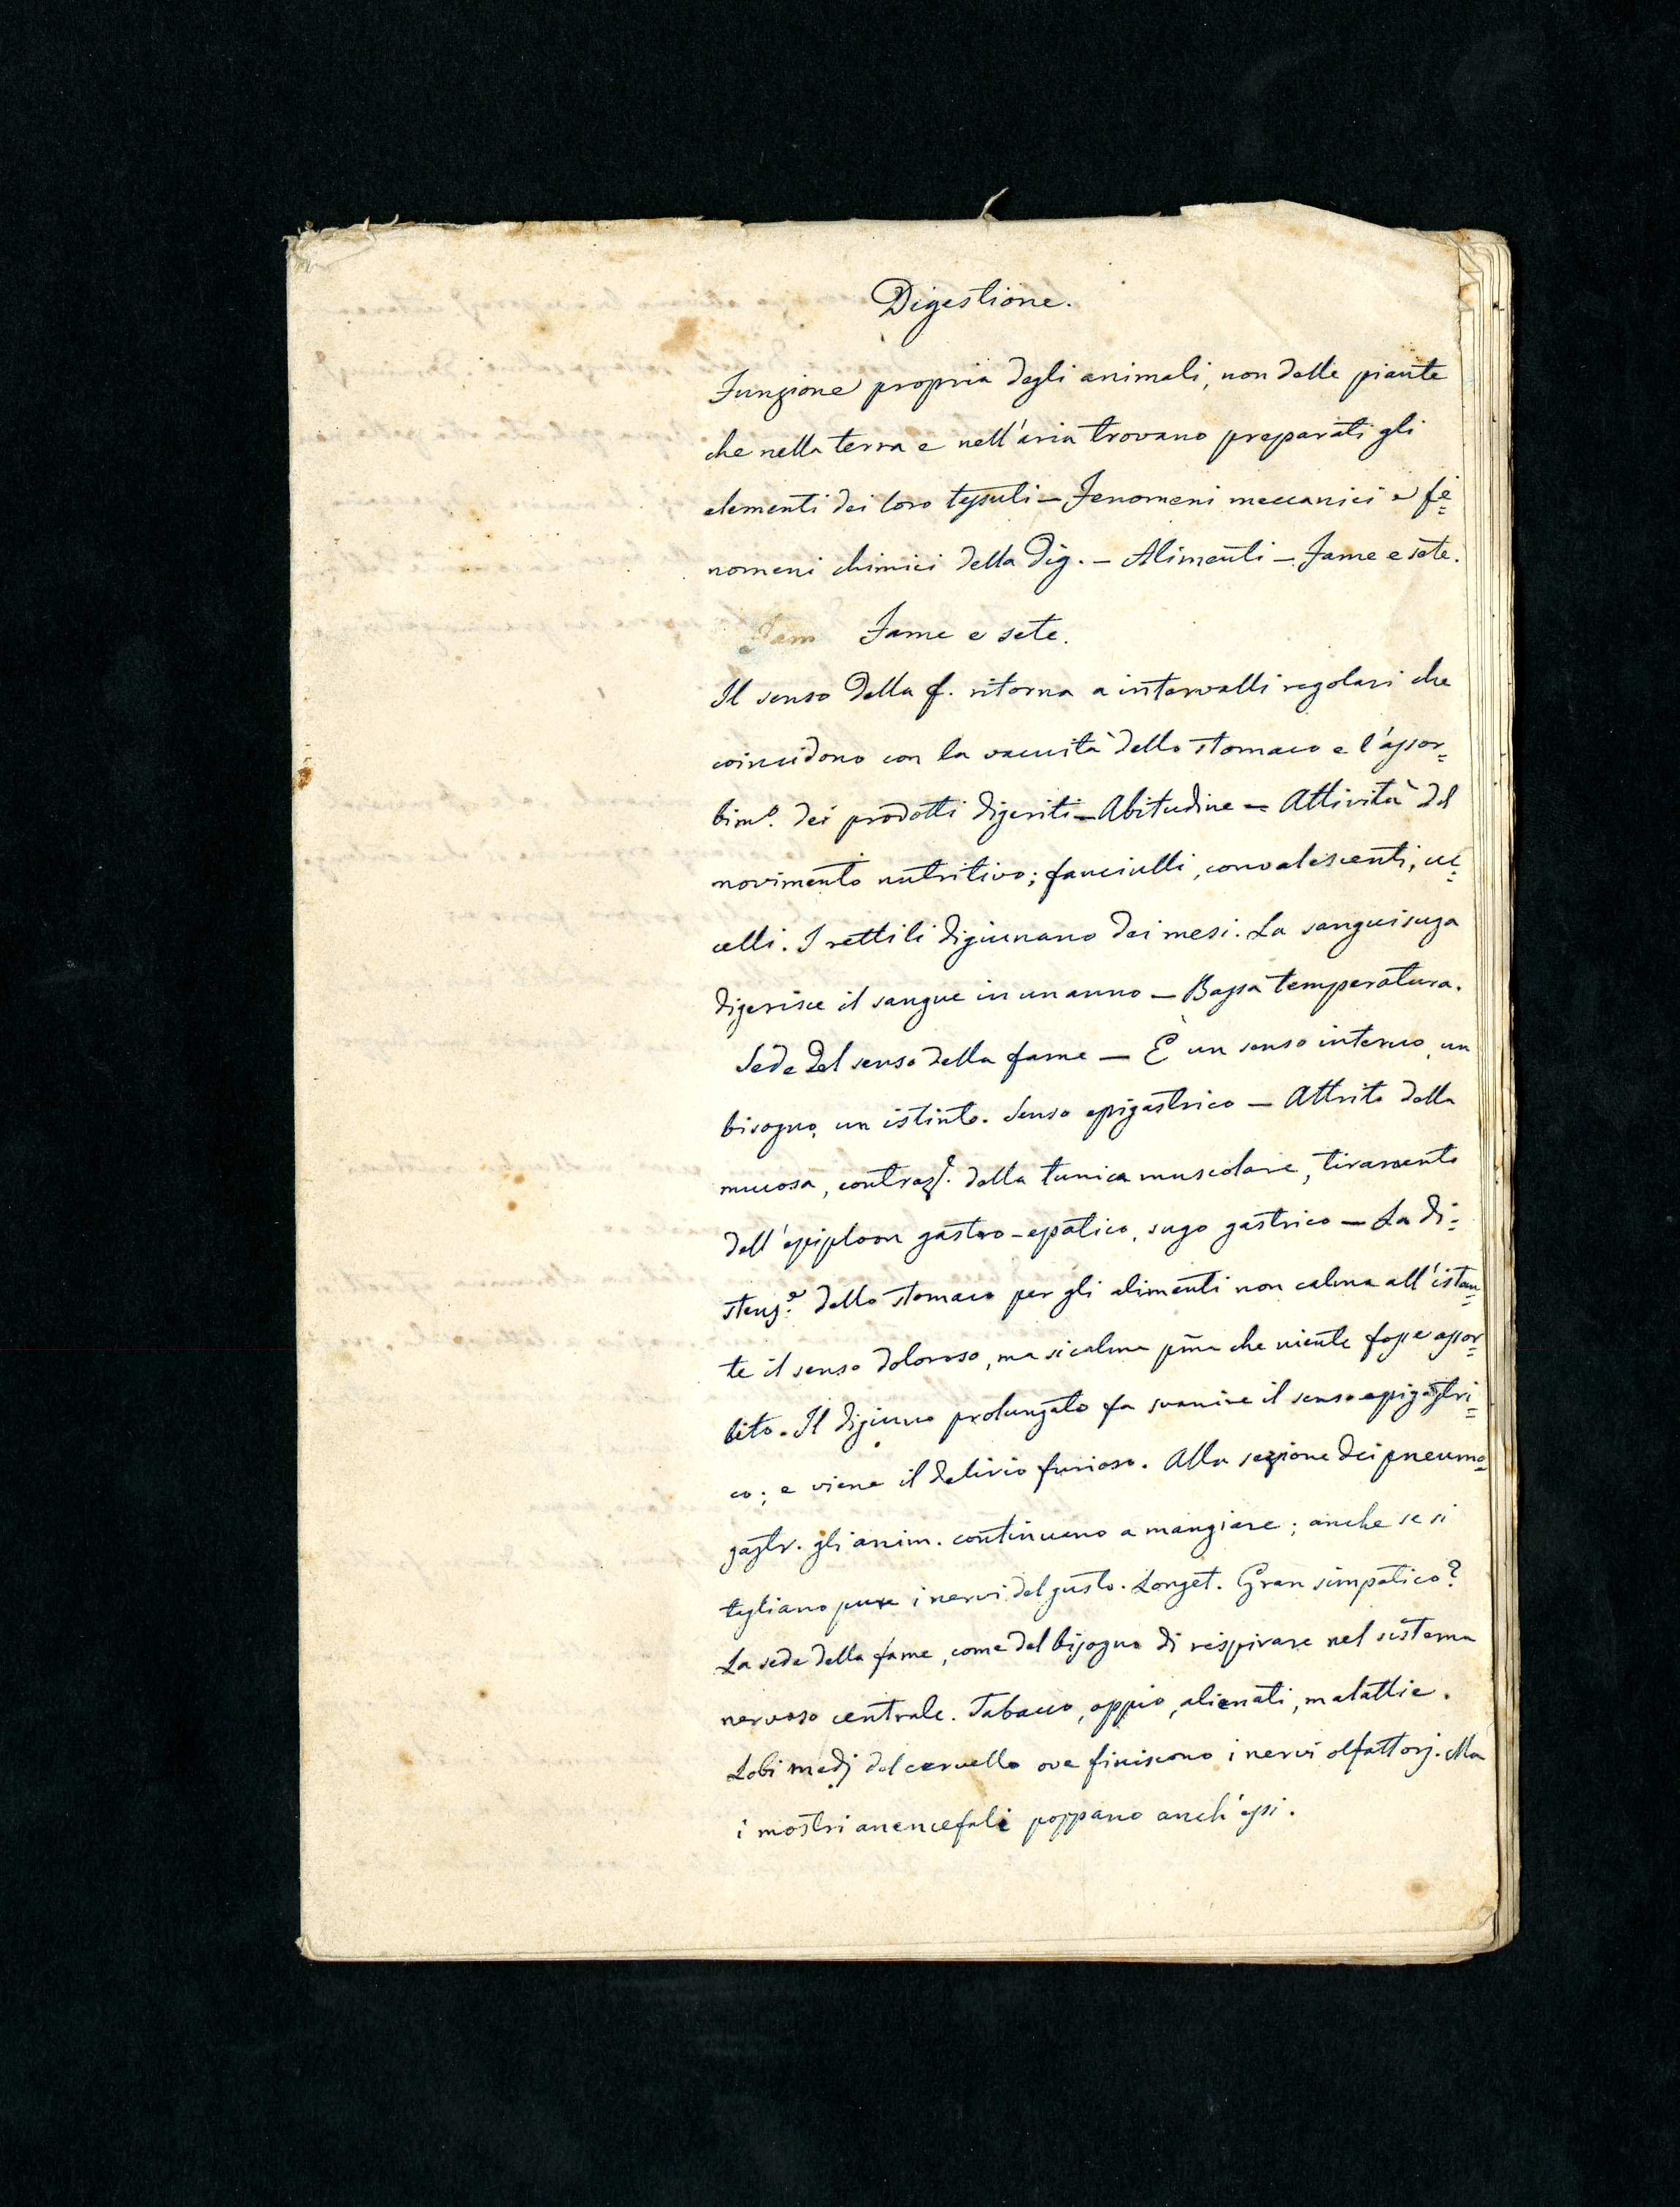 Digestione.
Funzione propria degli animali, non delle piante
che nella terra e nell'aria trovano preparati gli
elementi dei loro tessuti — Fenomeni meccanici e fe=
nomeni chimici della dig. — Alimenti — Fame e sete.
Fam Fame e sete.
Il senso della f. ritorna a intervalli regolari che
coincidono con la vacuità dello stomaco e l'assor=
bimº. dei prodotti digeriti — Abitudine — Attività del
movimento nutritivo; fanciulli, convalescenti, uc=
celli. I rettili digiunano dei mesi. La sanguisuga
digerisce il sangue in un anno — Bassa temperatura.
Sede del senso della fame — È un senso interno, un
bisogno, un istinto. Senso epigastrico — Attrito della
mucosa, contrazᵉ. della tunica muscolare, tiramento
dell'epiploon gastro-epatico, sugo gastrico — La di=
stenzᵉ. dello stomaco per gli alimenti non calma all'istan=
te il senso doloroso, ma si calma pma che niente fosse assor=
bito. Il digiuno prolungato fa svanire il senso epigastri=
co; e viene il delirio furioso. Alla sezione dei pneumo=
gastr. gli anim. continuano a mangiare; anche se si
tagliano pure i nervi del gusto. Longet. Gran simpatico?
La sede della fame, come del bisogno di respirare nel sistema
nervoso centrale. Tabacco, oppio, alienati, malattie.
Lobi medj del cervello ove finiscono i nervi olfattorj. Ma
i mostri anencefali poppano anch'essi.